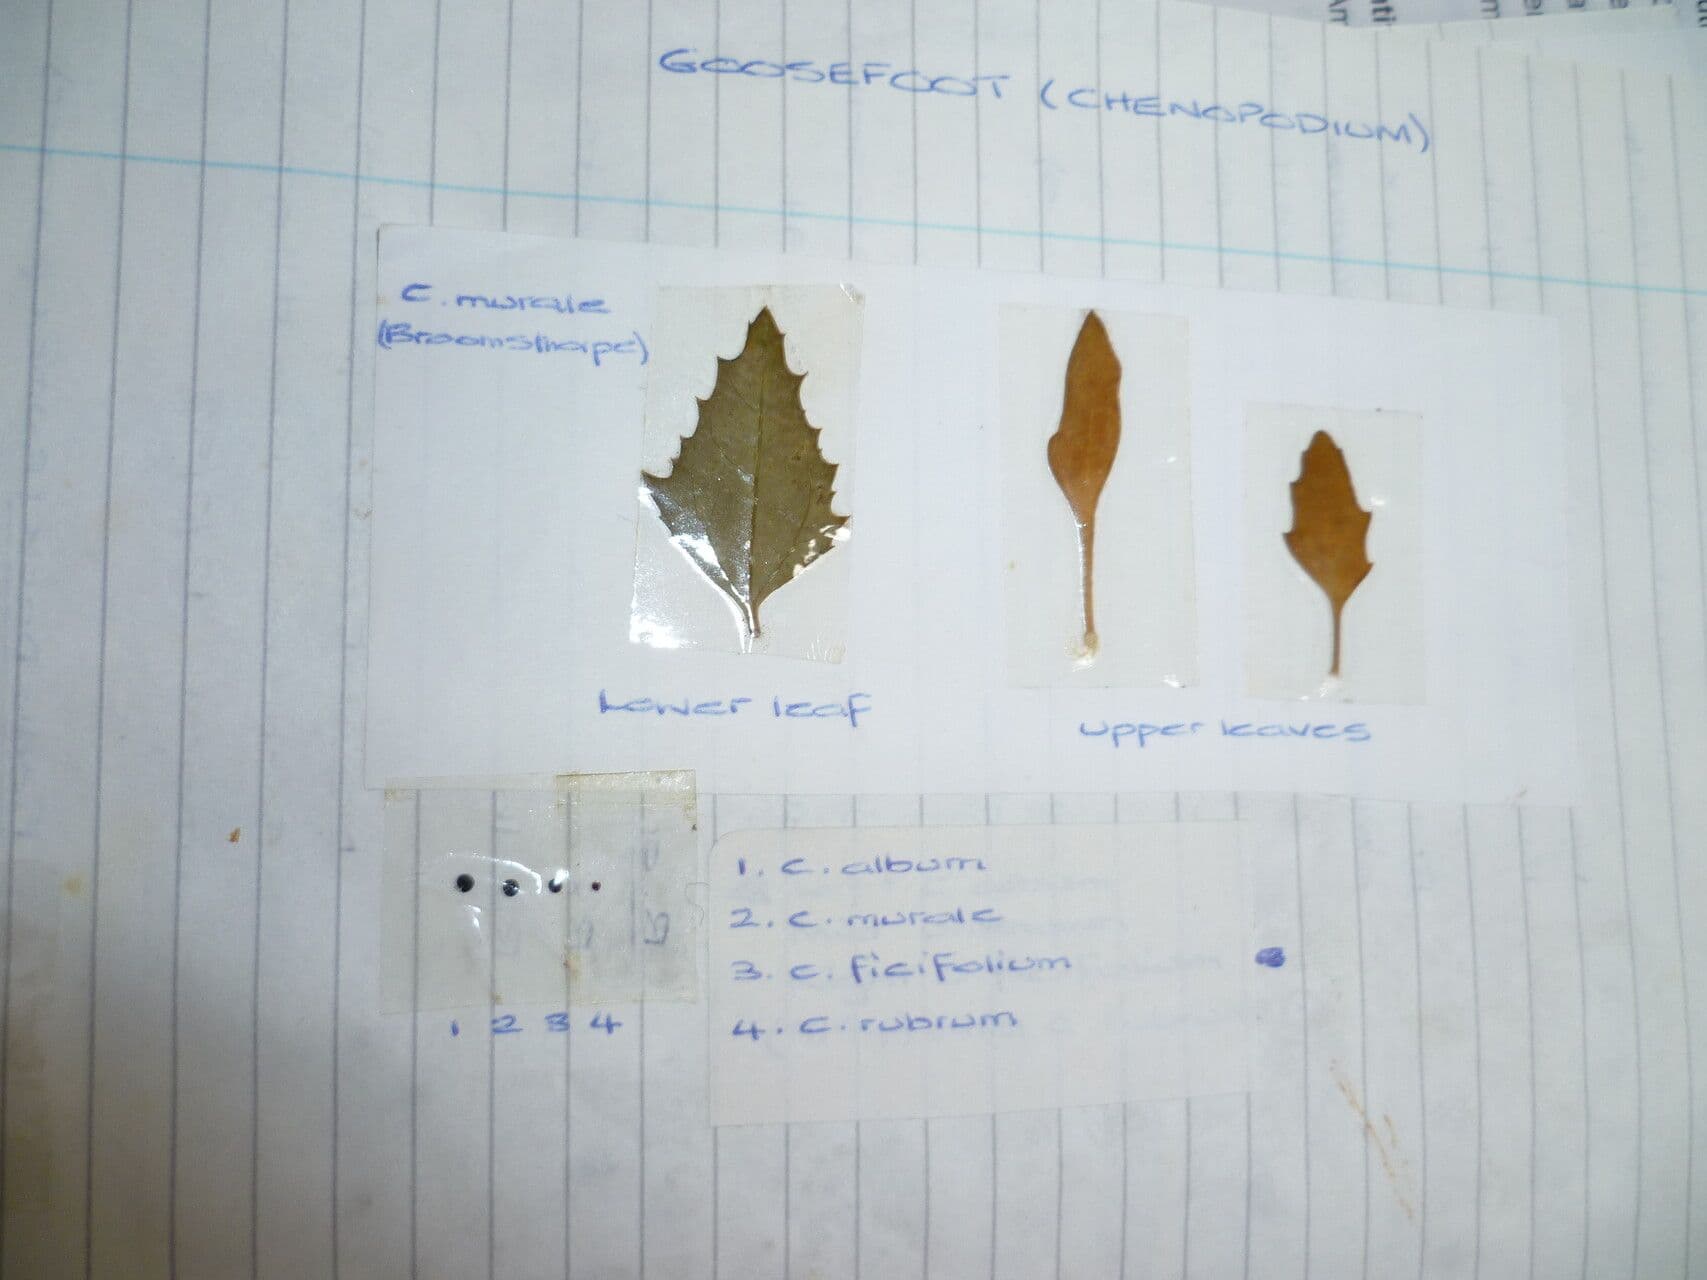 GOOSEFOOT (CHENOPODIUM)
C. murale
(Broomsthorpe)
Lower leaf
upper leaves
1 2 3 4
1. C. album
2. C. murale
3. C. ficifolium
4. C. rubrum